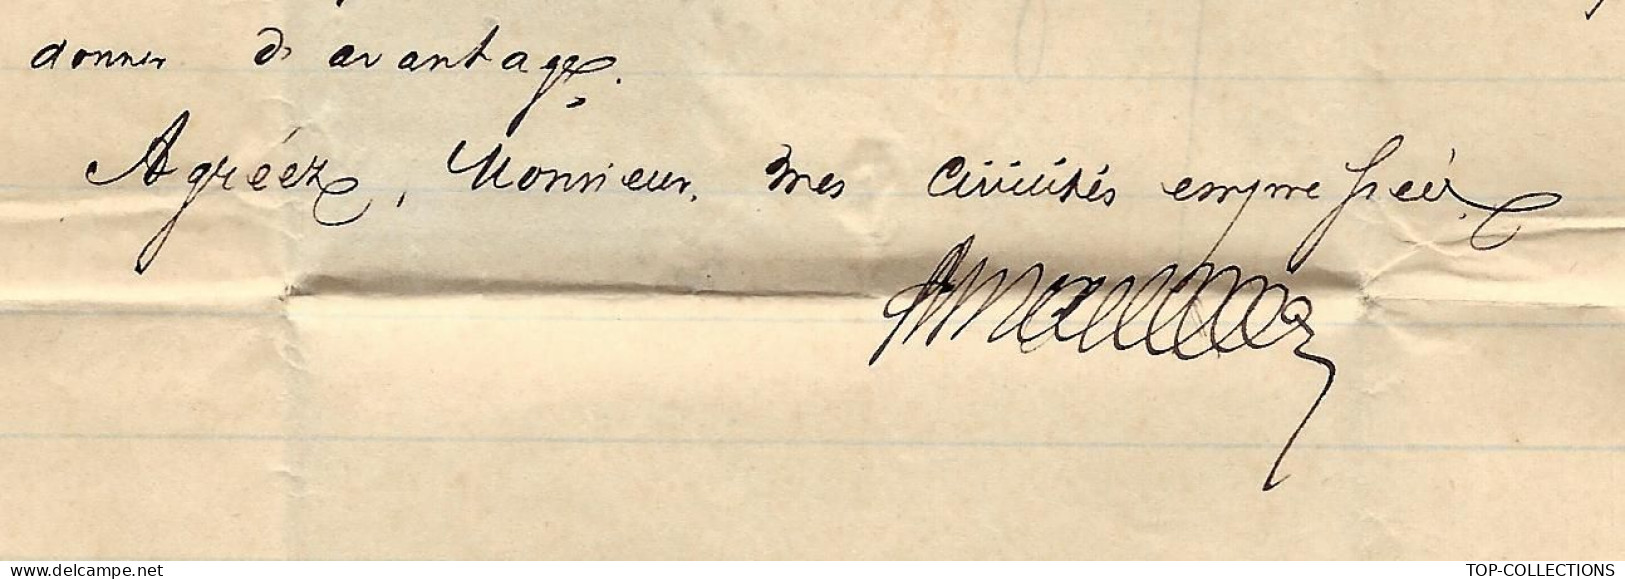 donner d'avantage.
Agréez, Monsieur, mes civilités empressées.
www.delcampe.net
TOP-COLLECTIONS